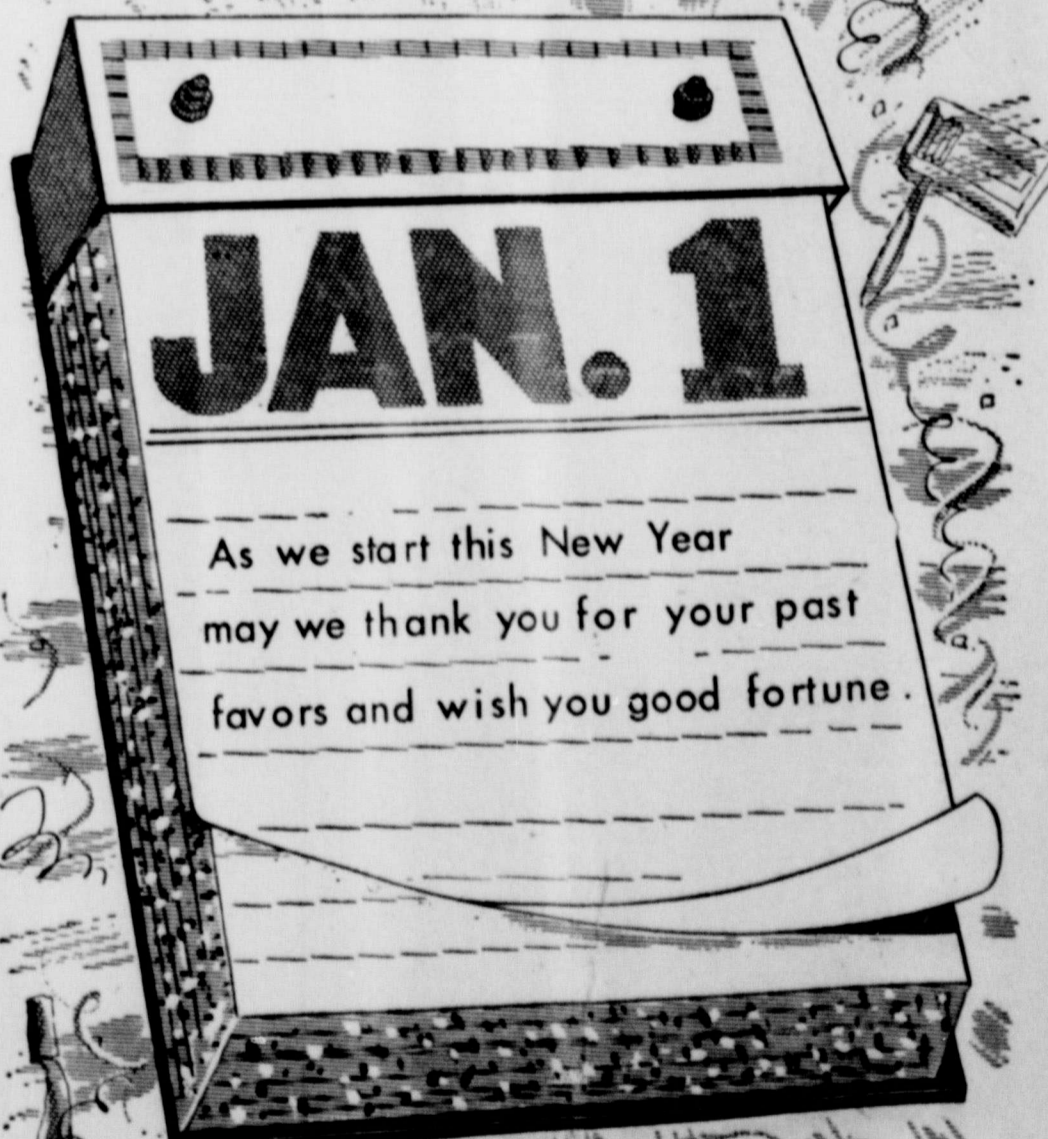 JAN. 1
As we start this New Year
may we thank you for your past
favors and wish you good fortune.